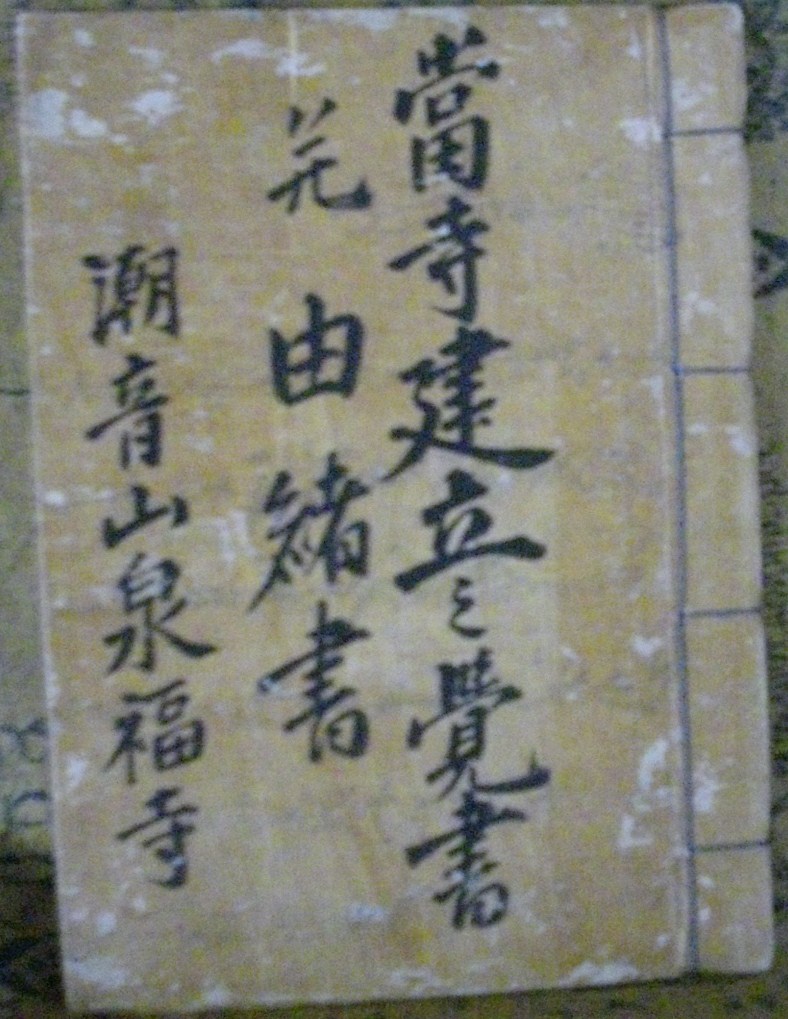 當寺建立之覺書
由緒書
潮音山泉福寺